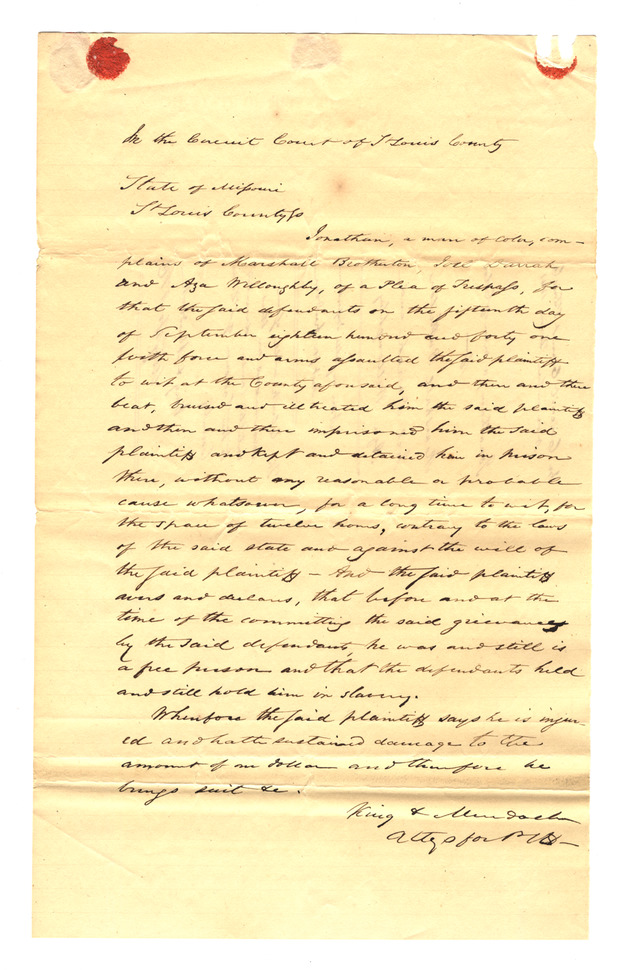 In the Circuit Court of St Louis County
State of Missouri
St Louis County ss
Jonathan, a man of color, com-
plains of Marshall Brotherton, Joel Darrah
and Aza Willoughby, of a Plea of Trespass, for
that the said defendants on the fifteenth day
of September eighteen hundred and forty one
with force and arms assaulted the said plaintiff
to wit at the County aforesaid, and then and there
beat, bruised and illtreated him the said plaintiff
and then and there imprisoned him the said
plaintiff and kept and detained him in prison
there, without any reasonable or probable
cause whatsoever, for a long time to wit, for
the space of twelve hours, contrary to the laws
of the said state and against the will of
the said plaintiff - And the said plaintiff
avers and declares, that before and at the
time of the committing the said grievances
by the said defendants, he was and still is
a free person and that the defendants held
and still hold him in slavery.
Wherefore the said plaintiff says he is injur-
ed and hath sustained damage to the
amount of dollar and therefore he
brings suit &c.
King &
Attys for Plff -